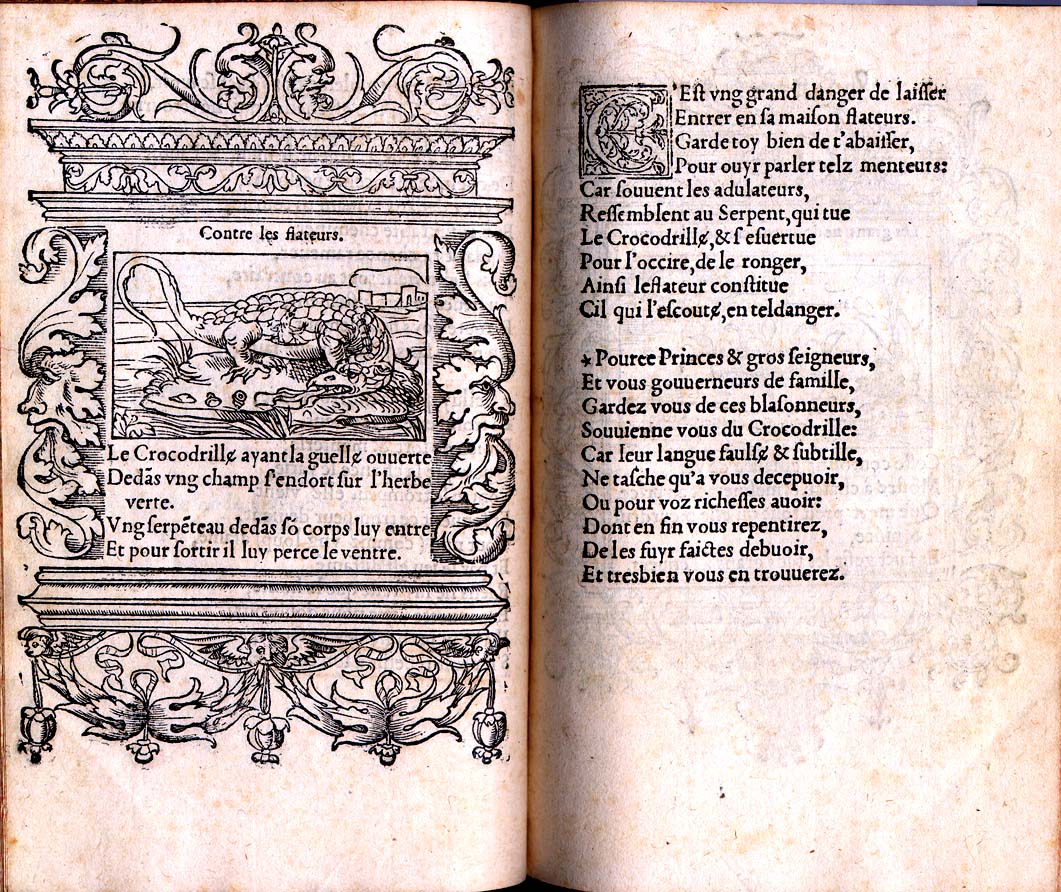 Contre les flateurs.
Le Crocodrillɇ ayant la guellɇ ouuerte
Dedãs vng champ ſ'endort ſur l'herbe
verte.
Vng ſerpẽteau dedãs ſõ corps luy entre,
Et pour ſortir il luy perce le ventre.
C'Eſt vng grand danger de laiſſer
Entrer en ſa maiſon flateurs.
Garde toy bien de t'abaiſſer,
Pour ouyr parler telz menteurs:
Car ſouuent les adulateurs,
Reſſemblent au Serpent, qui tue
Le Crocodrillɇ, & ſ'eſuertue
Pour l'occire, de le ronger,
Ainſi leflateur conſtitue
Cil qui l'eſcoutɇ, en teldanger.
Pource Princes & gros ſeigneurs,
Et vous gouuerneurs de famille,
Gardez vous de ces blaſonneurs,
Souuienne vous du Crocodrille:
Car leur langue faulſɇ & ſubtille,
Ne taſche qu'a vous decepuoir,
Ou pour voz richeſſes auoir:
Dont en fin vous repentirez,
De les fuyr faictes debuoir,
Et tresbien vous en trouuerez.